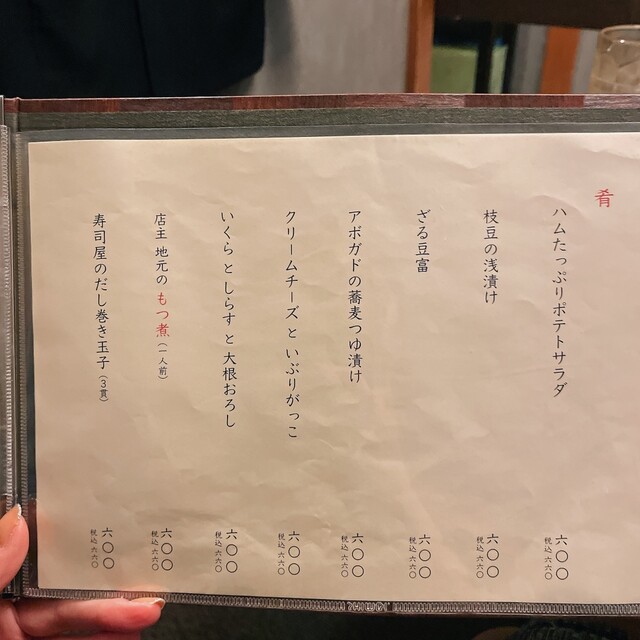 肴
ハムたっぷりポテトサラダ
六〇〇
税込 六六〇
枝豆の浅漬け
六〇〇
税込 六六〇
ざる豆富
六〇〇
税込 六六〇
アボガドの蕎麦つゆ漬け
六〇〇
税込 六六〇
クリームチーズ と いぶりがっこ
六〇〇
税込 六六〇
いくら と しらす と 大根おろし
六〇〇
税込 六六〇
店主 地元の もつ煮 (一人前)
六〇〇
税込 六六〇
寿司屋のだし巻き玉子 (3貫)
六〇〇
税込 六六〇